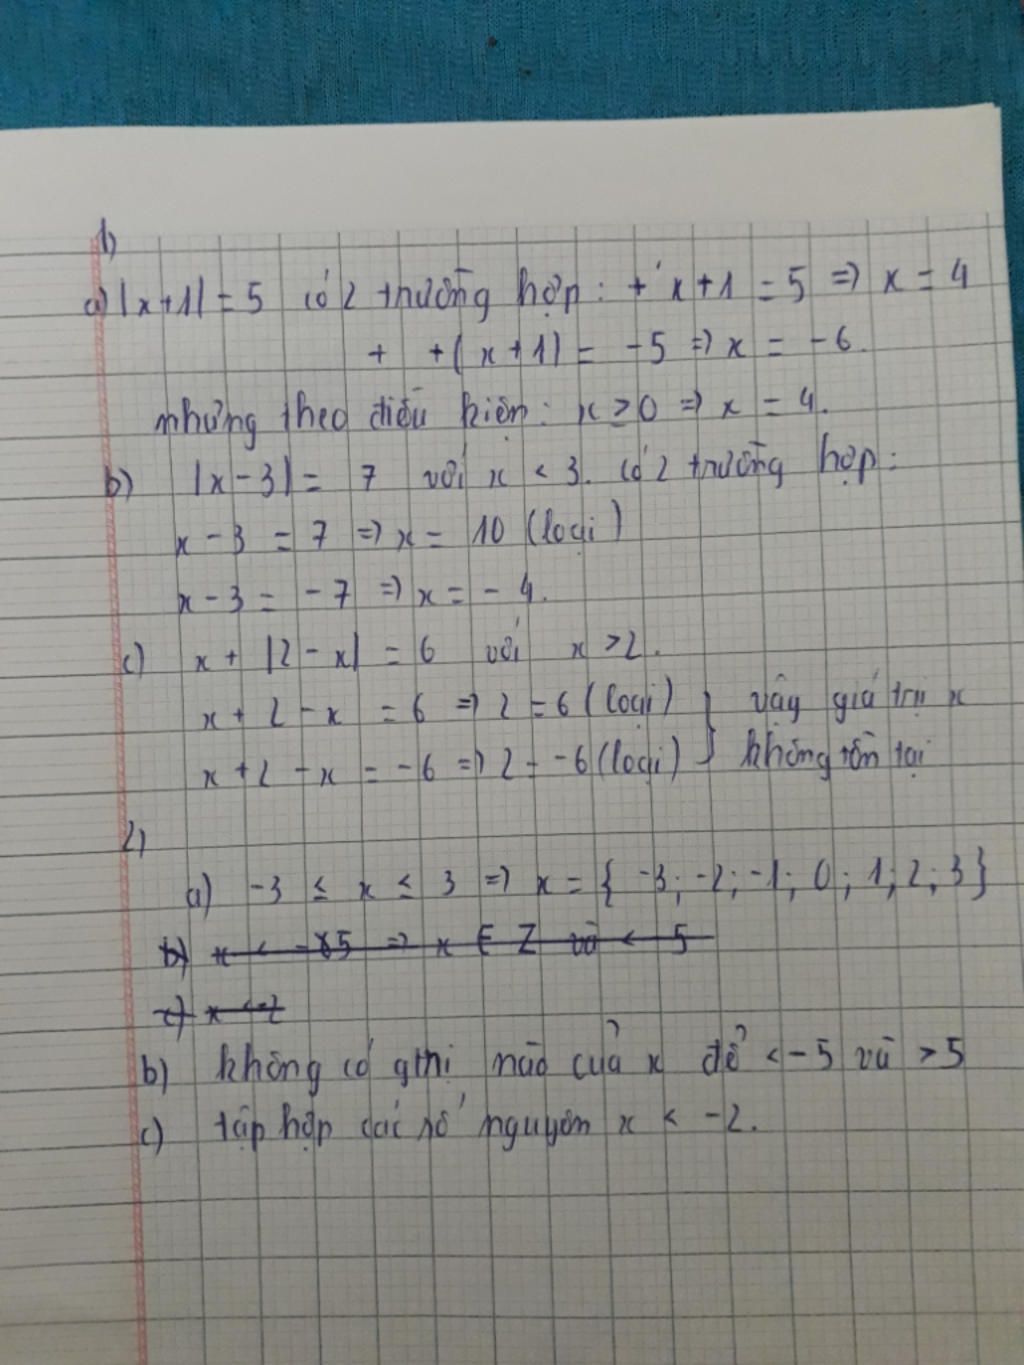 1)
a) |x+1| = 5 có 2 trường hợp: + x+1 = 5 => x = 4
+ +(x+1) = -5 => x = -6.
nhưng theo điều kiện: x ≥ 0 => x = 4.
b) |x-3| = 7 với x < 3. có 2 trường hợp:
x - 3 = 7 => x = 10 (loại)
x - 3 = -7 => x = -4.
c) x + |2 - x| = 6 với x > 2.
x + 2 - x = 6 => 2 = 6 (loại) } vậy giá trị x
x + 2 - x = -6 => 2 = -6 (loại) } không tồn tại
2)
a) -3 ≤ x ≤ 3 => x = { -3; -2; -1; 0; 1; 2; 3 }
b) x < -5 => x ∈ Z và < 5
c) x < -2
b) không có nào của x để < -5 và > 5
c) tập hợp các số nguyên x < -2.